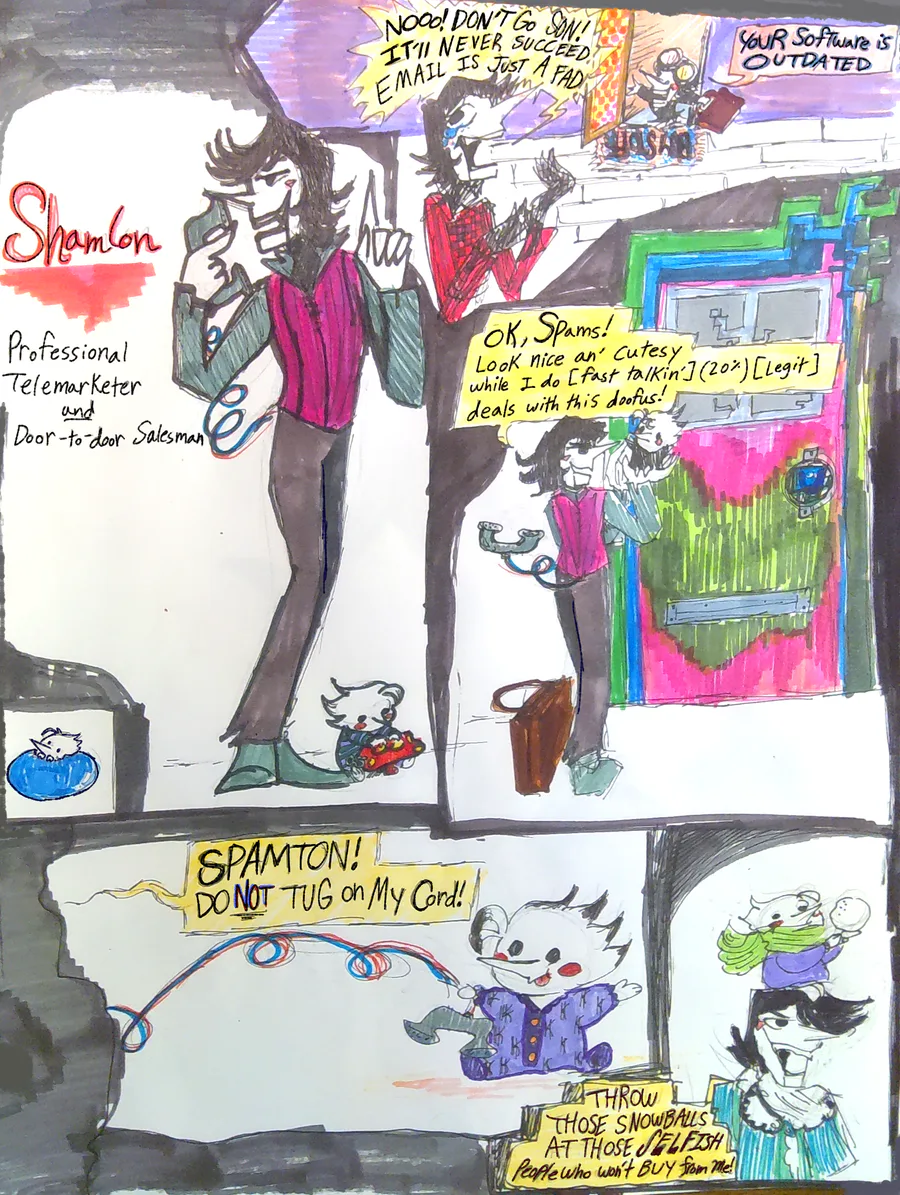 NOOO! DON'T GO SON!
IT'll NEVER SUCCEED.
EMAIL IS JUST A FAD.
YOUR Software is
OUTDATED
Shamlon
Professional
Telemarketer
and
Door-to-door Salesman
OK, Spams!
Look nice an' cutesy
while I do [fast talkin'] (20%) [Legit]
deals with this doofus!
SPAMTON!
DO NOT TUG on My Cord!
K K K K K K K K
THROW
THOSE SNOWBALLS
AT THOSE SELFISH
People who won't BUY from Me!